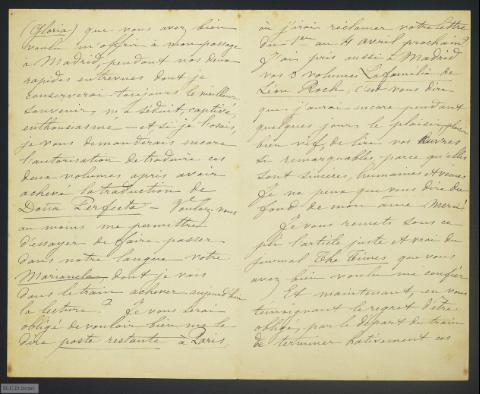 (Gloria) que vous avez bien
voulu m'offrir à mon passage
à Madrid, pendant nos deux
rapides entrevues dont je
conserverai toujours le meilleur
souvenir, m'a séduit, captivé,
enthousiasmé — et si je l'osais,
je vous demanderais encore
l'autorisation de traduire ces
deux volumes après avoir
achevé la traduction de
Doña Perfecta — Voulez-vous
au moins me permettre
d'essayer de faire passer
dans notre langue votre
Marianela dont je vais
dans le train achever aujourd'hui
la lecture? Je vous serai
obligé de vouloir bien me le
dire poste restante à Paris,
où j'irai réclamer votre lettre
du 1er au 4 avril prochain?
J'ai pris aussi à Madrid
vos 3 volumes La familia de
León Roch, c'est vous dire
que j'aurai encore pendant
quelques jours le plaisir,
bien vif, de lire vos œuvres
si remarquables, parce qu'elles
sont sincères, humaines et vraies
Je ne peux que vous dire du
fond de mon âme Merci!
Je vous remets sous ce
pli l'article juste et vrai du
journal The Times que vous
avez bien voulu me confier
Et maintenant, en vous
témoignant le regret d'être
obligé, par le départ du train
de terminer hâtivement ces